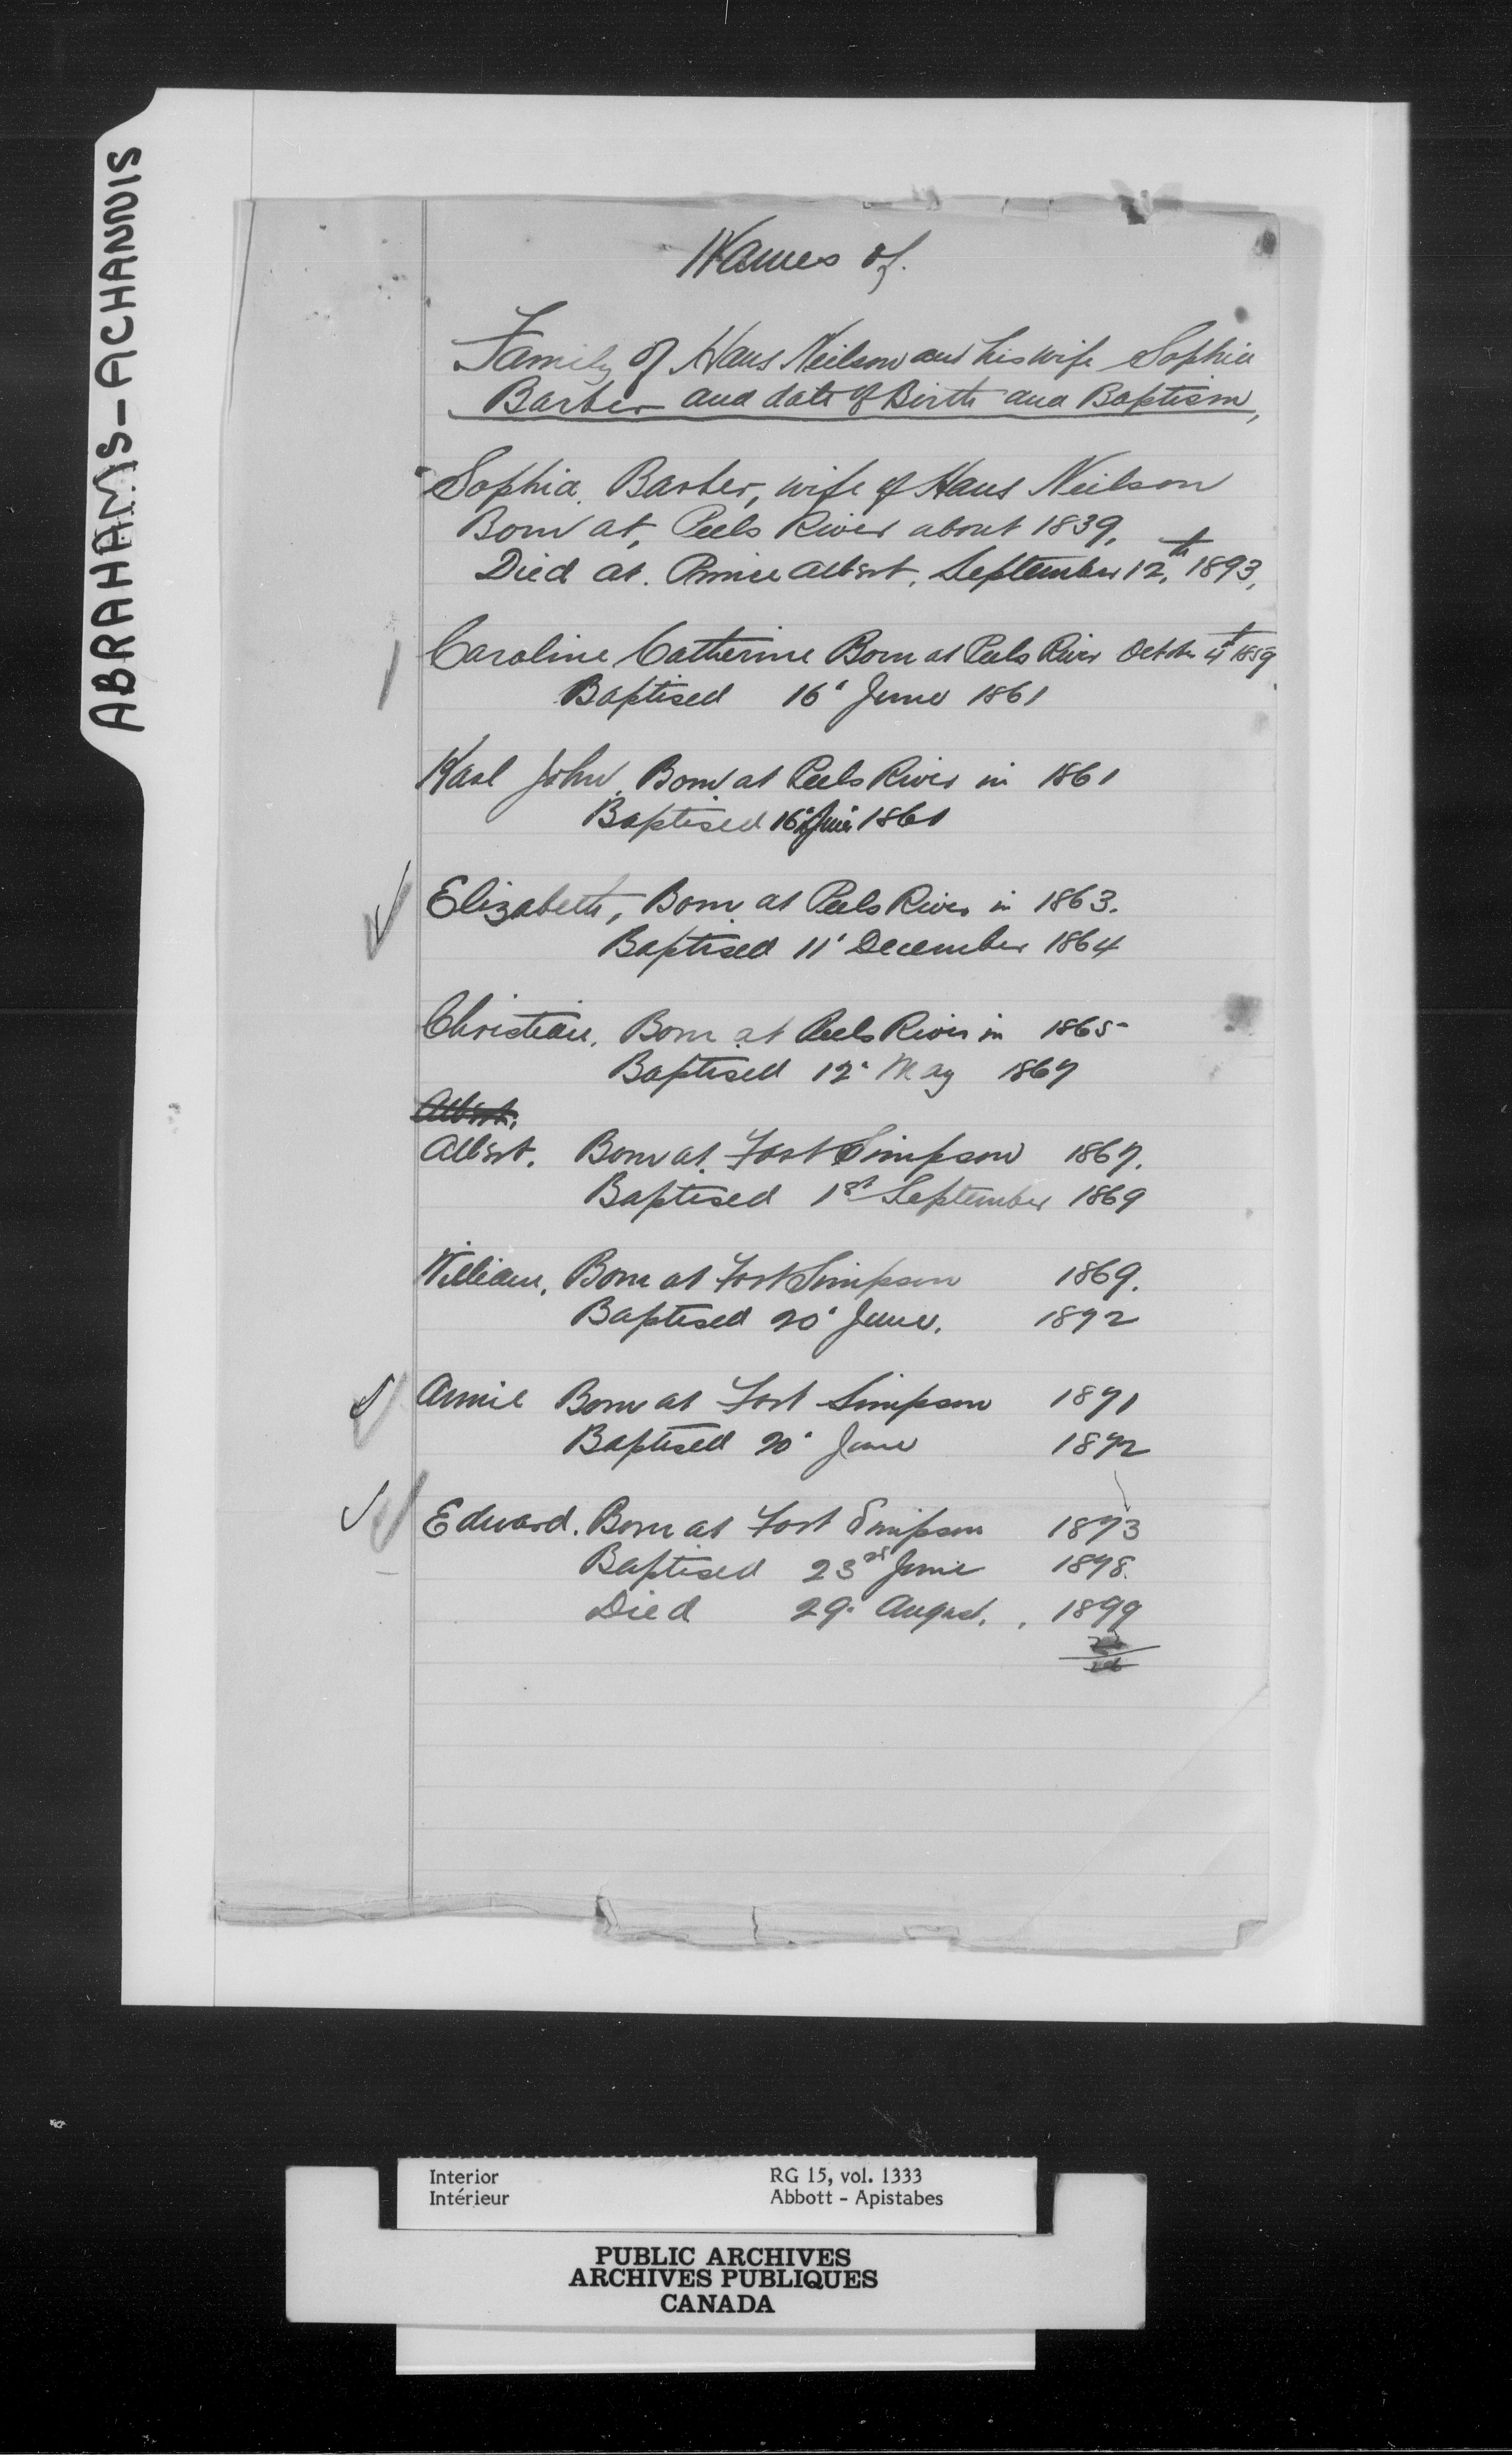 ABRAHAMS-ACHANNIS
Names of.
Family of Hans Neilson and his wife Sophia
Barber and date of Birth and Baptism,
Sophia Barber, wife of Hans Neilson
Born at, Peels River about 1839,
Died at. Prince Albert, September 12th, 1893,
Caroline Catherine Born at Peels River October 4th 1859
Baptised 16" June 1861
Karl John, Born at Peels River in 1861
Baptised 16" June 1861
Elizabeth, Born at Peels River in 1863.
Baptised 11" December 1864
Christian, Born at Peels River in 1865
Baptised 12" May 1867
Albert.
Albert. Born at Fort Simpson 1867.
Baptised 1st September 1869
William, Born at Fort Simpson 1869.
Baptised 20" June, 1872
Annie Born at Fort Simpson 1871
Baptised 20" June 1872
Edward. Born at Fort Simpson 1873
Baptised 23rd June 1878.
Died 29" August, 1899
Interior RG 15, vol. 1333
Intérieur Abbott - Apistabes
PUBLIC ARCHIVES
ARCHIVES PUBLIQUES
CANADA